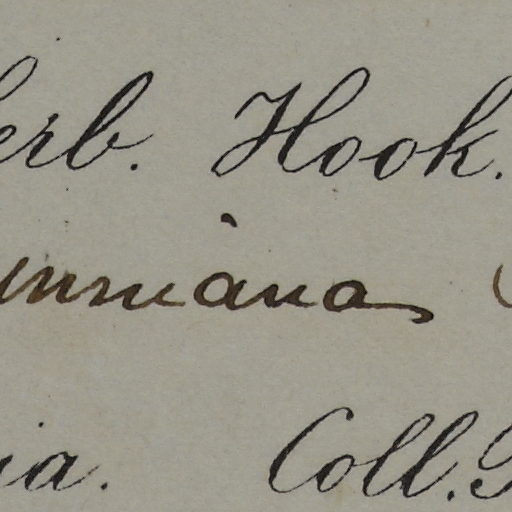 erb. Hook.
unniana
ia. Coll.